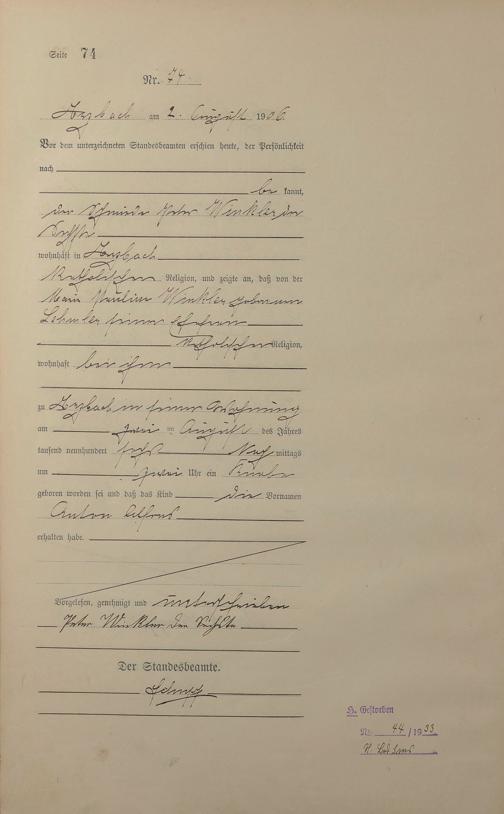 Seite 74
Nr. 74
am 2. August 1906
Vor dem unterzeichneten Standesbeamten erschien heute, der Persönlichkeit
nach
be kannt,
der Schmied Peter Winkler der
Sechste
wohnhaft in
Katholischer Religion, und zeigte an, daß von der
Winkler geborenen
seiner Ehefrau
Katholischer Religion,
wohnhaft bei ihm
zu in seiner Wohnung
am zwei ten August des Jahres
tausend neunhundert sechs Nach mittags
um zwei Uhr ein Knabe
geboren worden sei und daß das Kind die Vornamen
Anton Alfons
erhalten habe.
Vorgelesen, genehmigt und unterschrieben
Peter Winkler der Sechste
Der Standesbeamte.
H. Gestorben
Nr. 44 / 1933